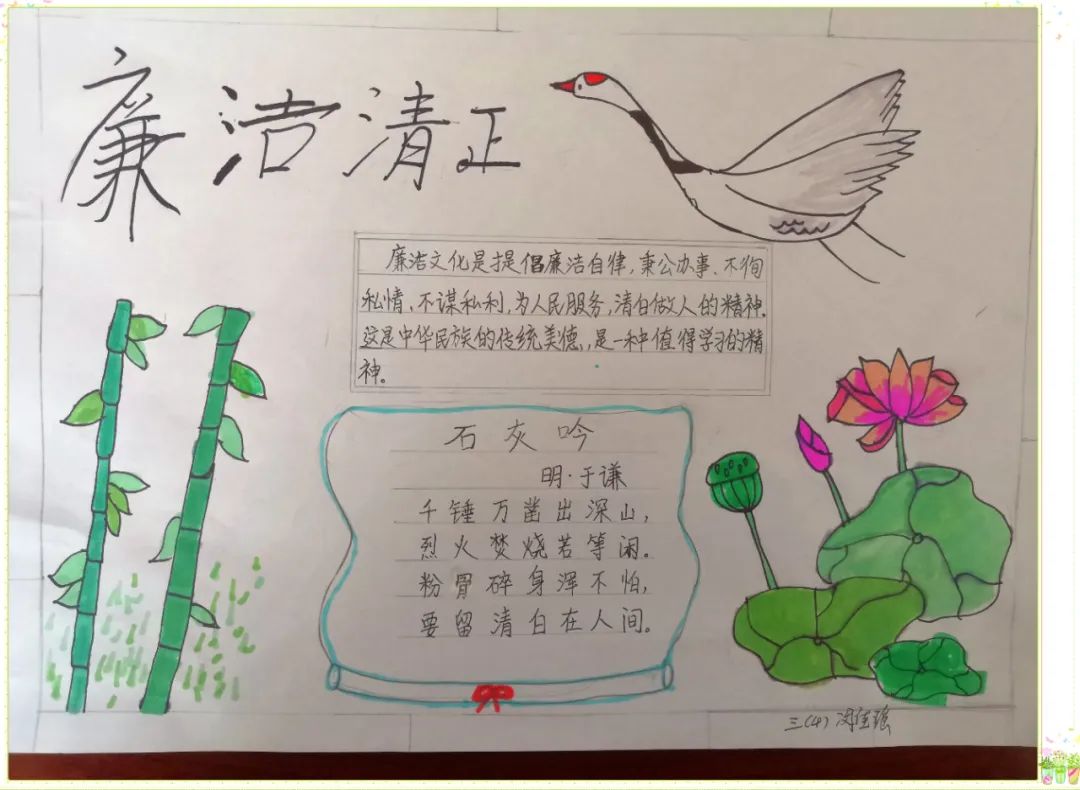 廉洁清正
廉洁文化是提倡廉洁自律，秉公办事、不徇
私情、不谋私利，为人民服务，清白做人的精神。
这是中华民族的传统美德，是一种值得学习的精
神。
石灰吟
明·于谦
千锤万凿出深山，
烈火焚烧若等闲。
粉骨碎身浑不怕，
要留清白在人间。
三(4)